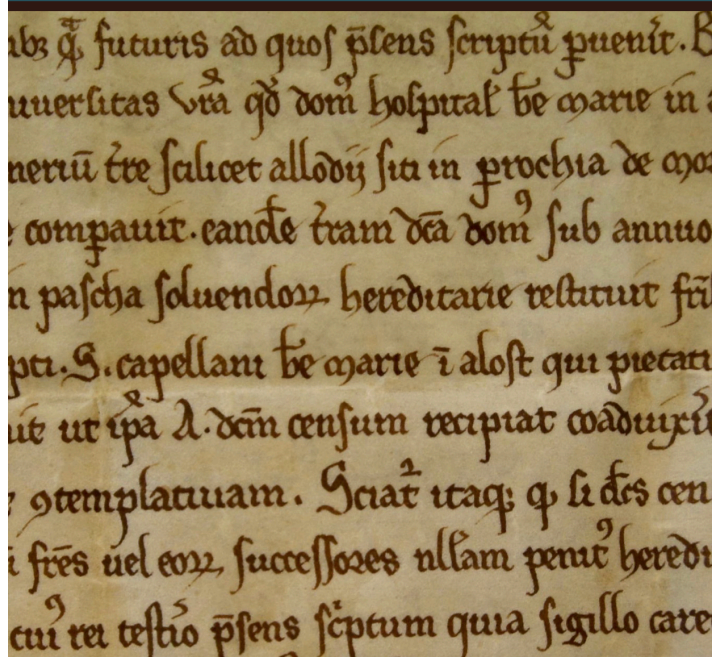 ibꝫ ꝙ̃ futuris ad quos p̄sens scriptū ꝑuen̄it. B
niuersitas vr̄a qd̄ dom⁹ hospitał b̄e marie in a
neriū t̄re scilicet allodij siti in ꝑrochia de mor
e comꝑauit. eand̄e t̄ram dc̄a dom⁹ sub annuo
n pascha soluendoꝝ hereditarie restituit fr̄i
pti. S. capellani b̄e marie ī alost qui pietati
uit ut ip̄a A. dc̄m censum recipiat coaduixit̄
ꝯtemplatiuam. Sciat᷑ itaqꝫ ꝙ si dc̄s cen
i fr̄es uel eoꝝ successores nłłam penit⁹ heredi
cui⁹ rei testīo p̄sens sc̄ptum quia sigillo care